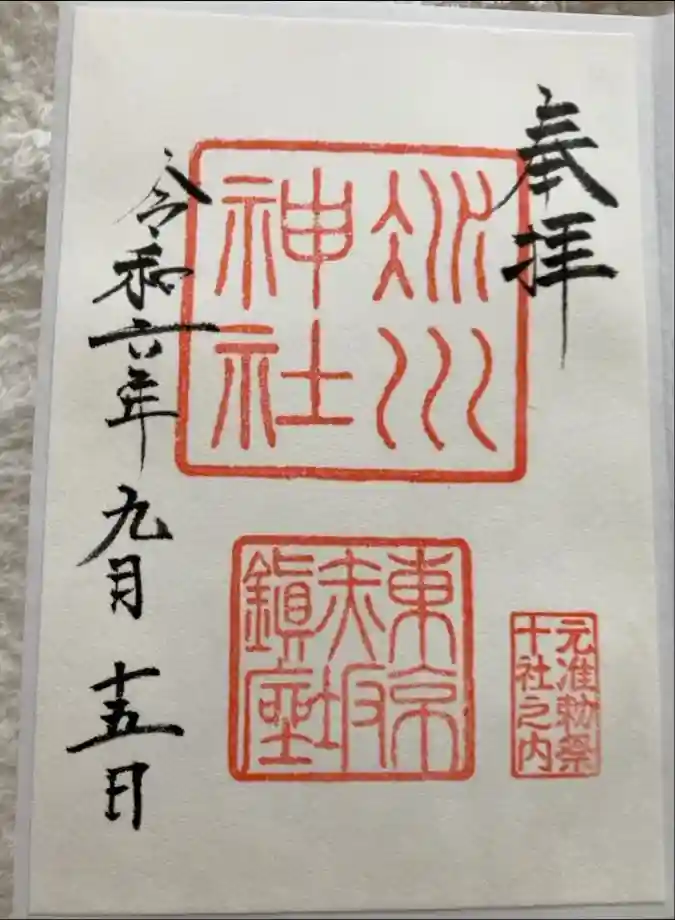 奉拝
氷川
神社
東京
赤坂
鎮座
元准勅祭
十社之内
令和六年九月十五日